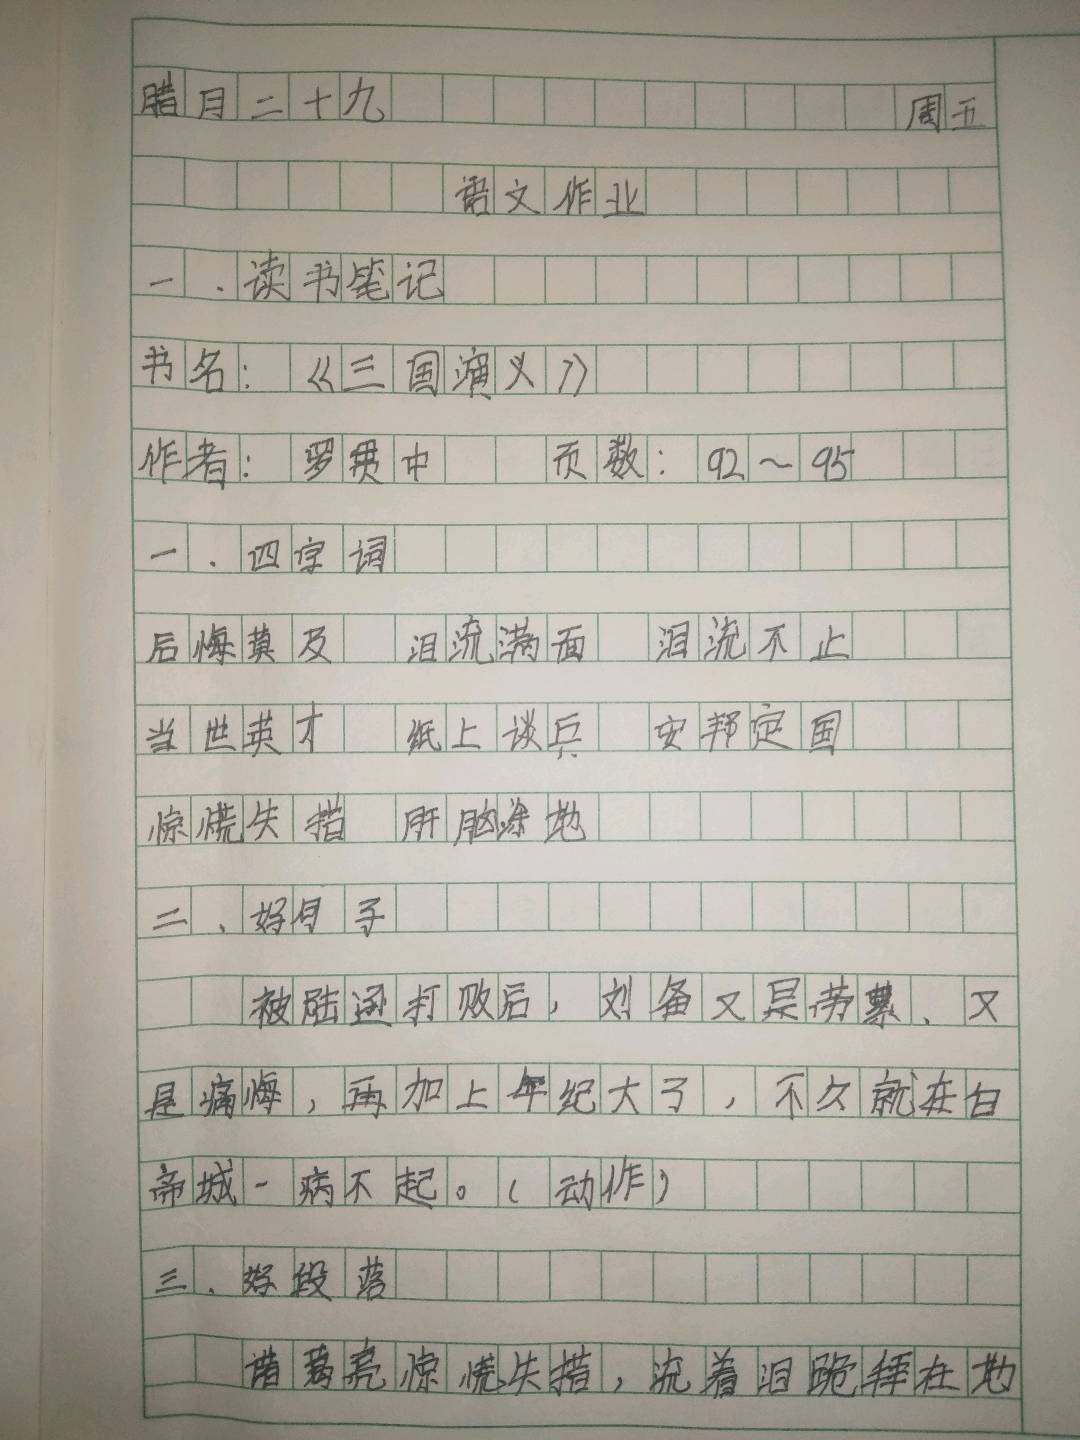 腊月二十九 周五
语文作业
一.读书笔记
书名:《三国演义》
作者:罗贯中 页数:92~95
一.四字词
后悔莫及 泪流满面 泪流不止
当世英才 纸上谈兵 安邦定国
惊慌失措 肝脑涂地
二、好句子
被陆逊打败后,刘备又是劳累、又
是痛悔,再加上年纪大了,不久就在白
帝城一病不起。(动作)
三.好段落
诸葛亮惊慌失措,流着泪跪拜在地